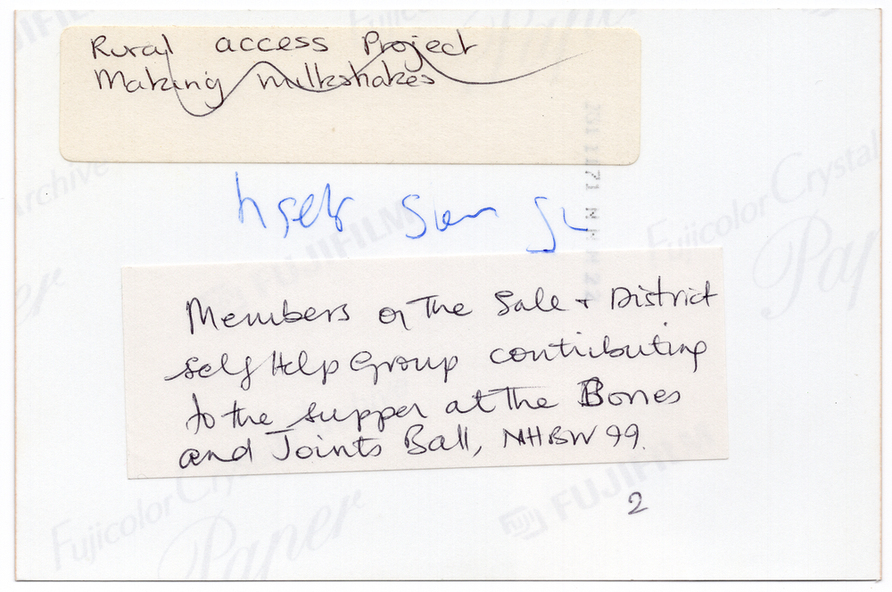 Rural access Project
Making milkshakes
Members of The Sale + District
Self Help Group contributing
to the supper at the Bones
and Joints Ball, NHBW 99.
2
Fujicolor Crystal
Archive
Paper
FUJIFILM